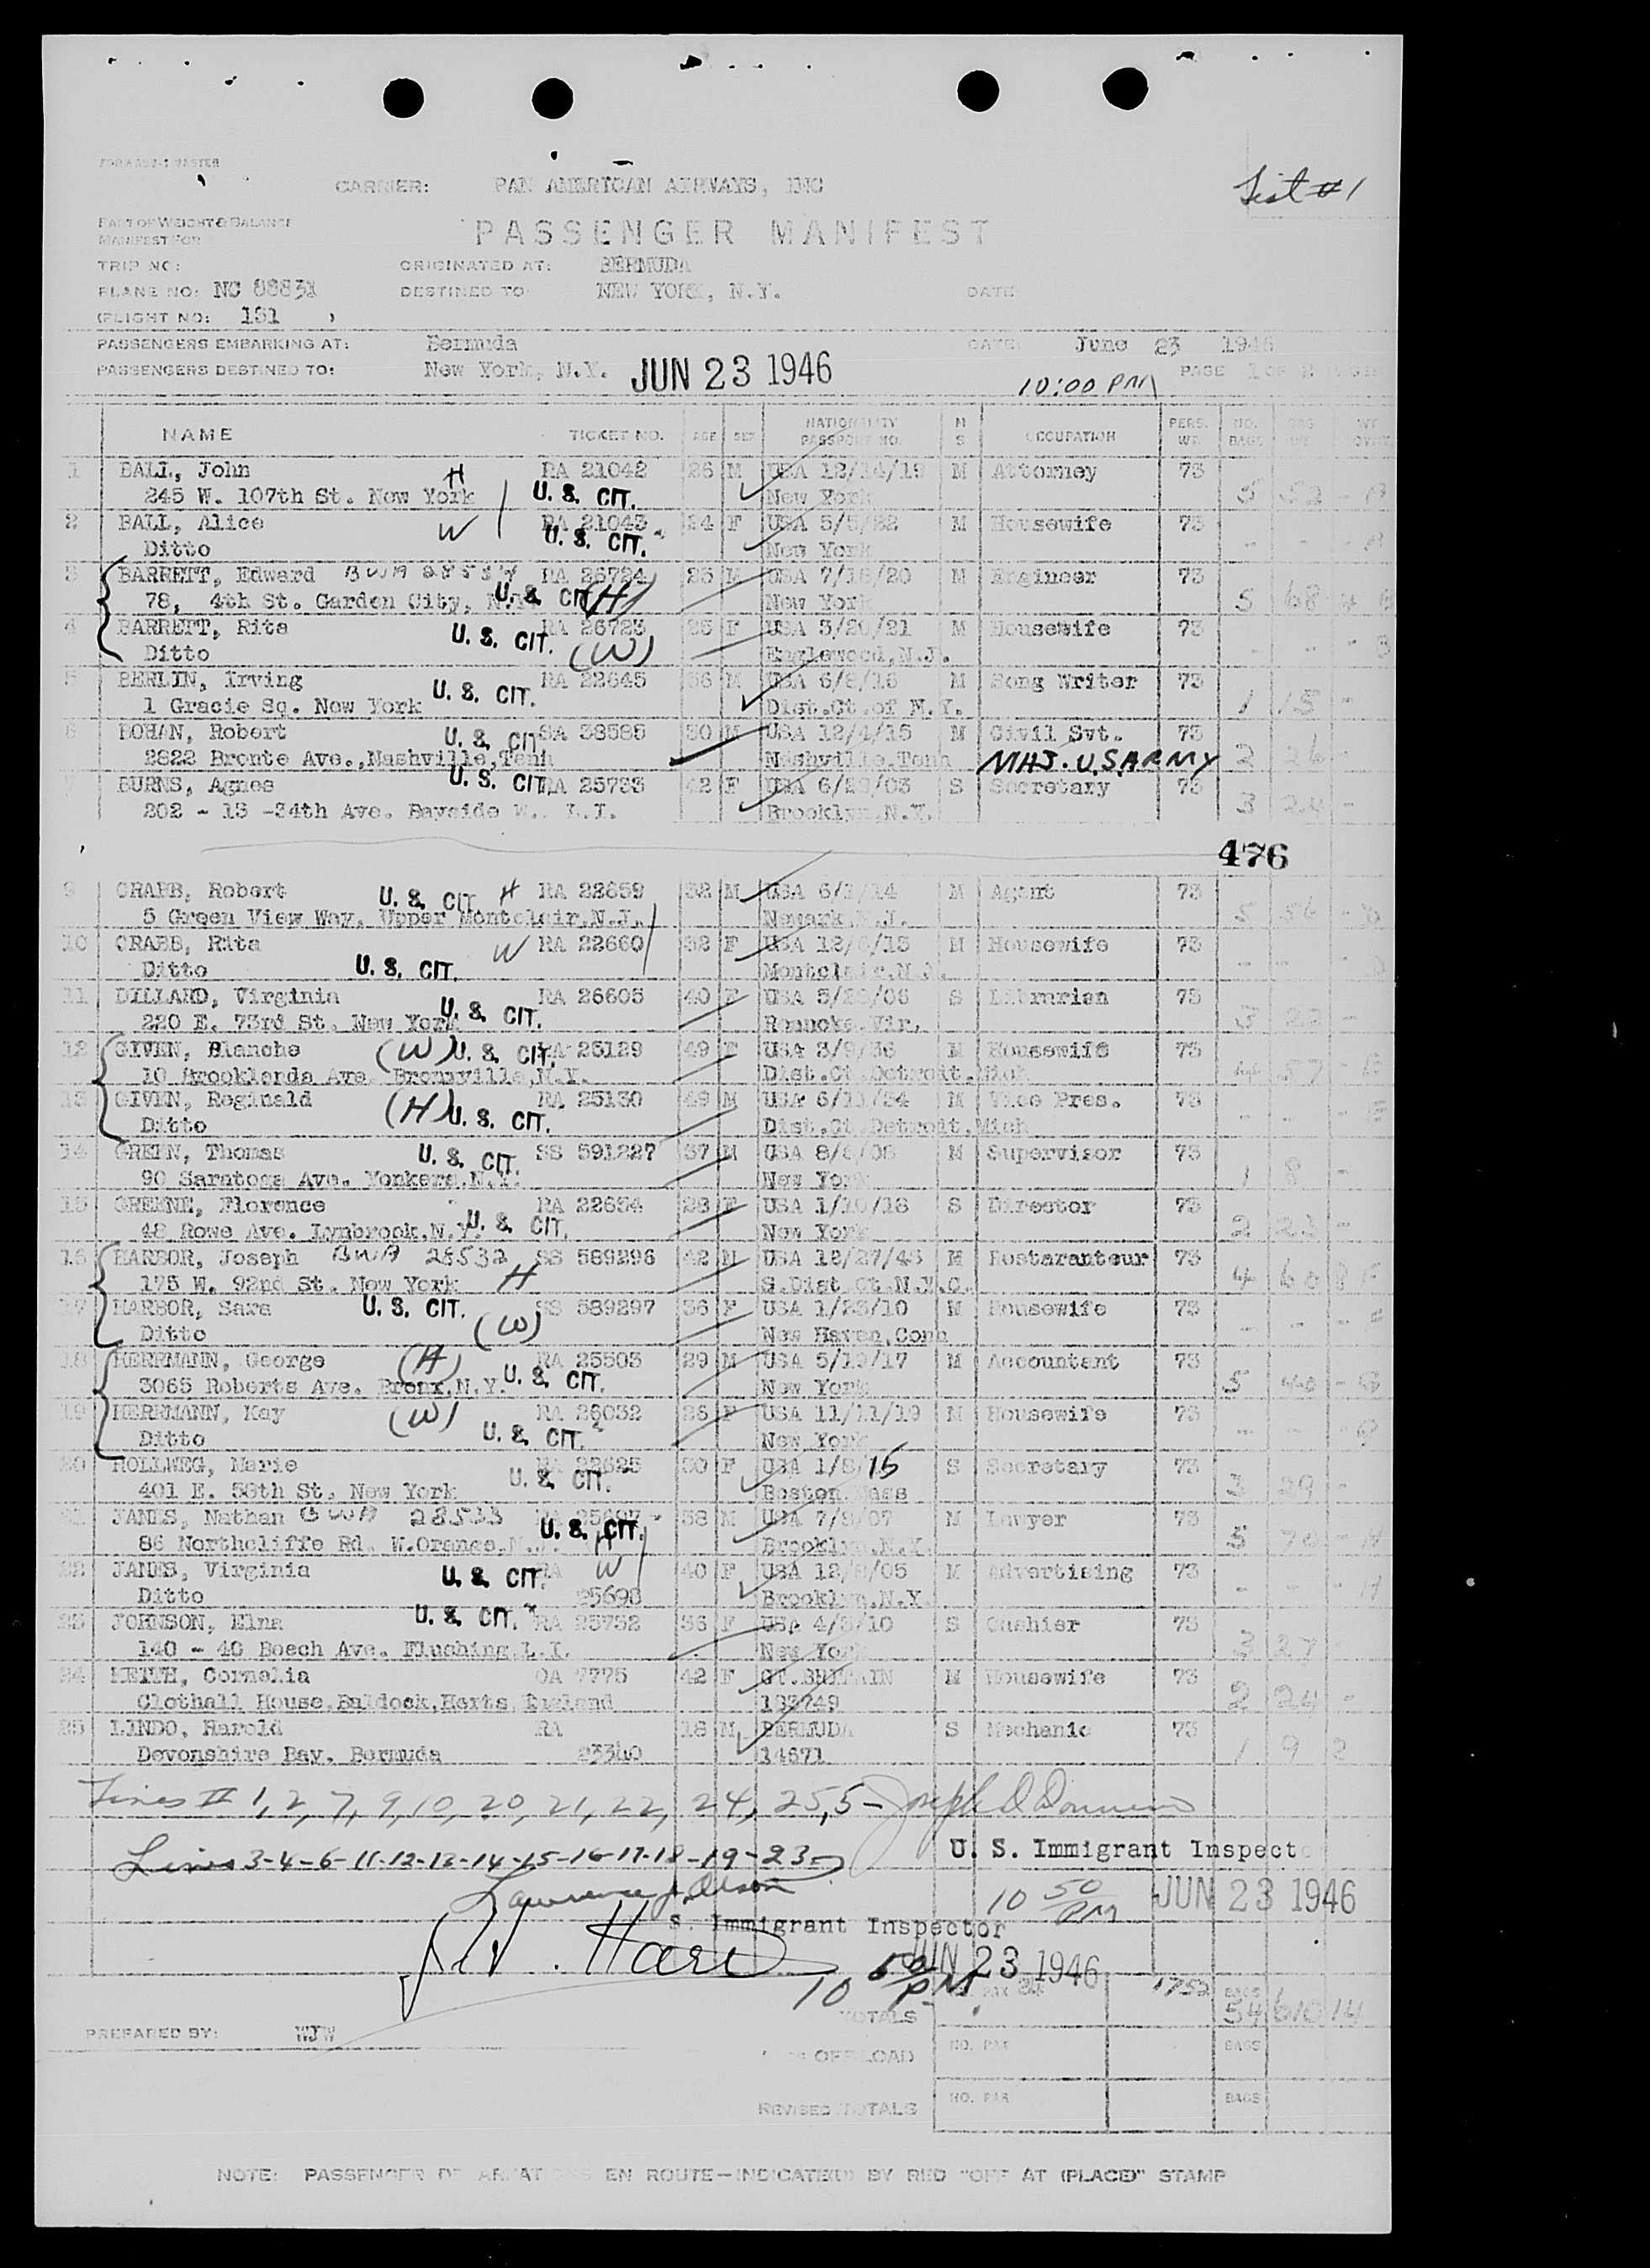 FORM ASM-1 MASTER
CARRIER: PAN AMERICAN AIRWAYS, INC
List #1
PART OF WEIGHT & BALANCE
MANIFEST FOR
PASSENGER MANIFEST
TRIP NO: ORIGINATED AT: BERMUDA
PLANE NO: NC 88831 DESTINED TO: NEW YORK, N.Y. DATE:
(FLIGHT NO: 131 )
PASSENGERS EMBARKING AT: Bermuda DATE: June 23 1946
PASSENGERS DESTINED TO: New York, N.Y. JUN 23 1946 10:00 PM PAGE 1 OF 2
NAME TICKET NO. AGE SEX NATIONALITY PASSPORT NO. M S OCCUPATION PERS. WT. NO. BAGS BAG WT. WT OVWT
1 BALL, John H RA 21042 26 M USA 12/14/19 M Attorney 73
245 W. 107th St. New York U. S. CIT. New York 5 52 - A
2 BALL, Alice W RA 21043 24 F USA 5/5/22 M Housewife 73
Ditto U. S. CIT. New York - - - A
3 BARRETT, Edward BWA RA 26724 25 M USA 7/16/20 M Engineer 73
78, 4th St. Garden City, N.Y. U. S. CIT. (H) New York 5 68 4 B
4 BARRETT, Rita RA 26723 25 F USA 5/20/21 M Housewife 73
Ditto U. S. CIT. (W) Englewood, N.J. - - - B
5 BERLIN, Irving RA 22645 56 M USA 6/8/16 M Song Writer 73
1 Gracie Sq. New York U. S. CIT. Dist.Ct.of N.Y. 1 15 -
6 BOHAN, Robert U. S. CIT. SA 38585 30 M USA 12/4/15 M Civil Svt. 73
2822 Bronte Ave.,Nashville,Tenn Nashville,Tenn MAJ. U.S.ARMY 2 26 -
7 BURNS, Agnes U. S. CIT. RA 25733 42 F USA 6/29/03 S Secretary 73
202 - 13 -34th Ave. Bayside W., L.I. Brooklyn,N.Y. 3 24 -
476
9 CRABB, Robert U. S. CIT. H RA 22659 32 M USA 6/1/14 M Agent 73
5 Green View Way, Upper Montclair,N.J. Newark,N.J. 5 56 - D
10 CRABB, Rita W RA 22660 32 F USA 12/6/13 M Housewife 73
Ditto U. S. CIT. Montclair,N.J. - - - D
11 DILLARD, Virginia RA 26605 40 F USA 5/25/06 S Librarian 73
220 E. 73rd St. New York U. S. CIT. Roanoke,Vir. 3 22 -
12 GIVEN, Blanche (W) U. S. CIT. RA 25129 49 F USA 3/9/36 M Housewife 73
10 Brooklands Ave. Bronxville,N.Y. Dist.Ct.Detroit.Mich 4 57 - E
13 GIVEN, Reginald (H) RA 25130 49 M USA 6/11/34 M Vice Pres. 73
Ditto U. S. CIT. Dist.Ct.Detroit.Mich - - - E
14 GREEN, Thomas U. S. CIT. SS 591227 37 M USA 8/8/08 M Supervisor 73
90 Saratoga Ave. Yonkers,N.Y. New York 1 8 -
15 GREENE, Florence RA 22654 28 F USA 1/10/18 S Director 73
48 Rowe Ave. Lynbrook,N.Y. U. S. CIT. New York 2 23 -
16 HARBOR, Joseph BWA 28532 SS 589296 42 M USA 12/27/43 M Restaranteur 73
175 W. 92nd St. New York H S.Dist Ct.N.Y.C. 4 60 8 F
17 HARBOR, Sara U. S. CIT. SS 589297 36 F USA 1/23/10 M Housewife 73
Ditto (W) New Haven,Conn - - - F
18 HERRMANN, George (H) RA 25503 29 M USA 5/19/17 M Accountant 73
3065 Roberts Ave. Bronx,N.Y. U. S. CIT. New York 5 40 - G
19 HERRMANN, Kay (W) RA 26032 26 F USA 11/11/19 M Housewife 73
Ditto U. S. CIT. New York - - - G
20 HOLLWEG, Marie RA 22625 30 F USA 1/8/15 S Secretary 73
401 E. 58th St. New York U. S. CIT. Boston,Mass 3 29 -
21 JANES, Nathan BWA 28533 RA 25697 38 M USA 7/9/07 M Lawyer 73
86 Northcliffe Rd. W.Orange,N.J. U. S. CIT. H Brooklyn,N.Y. 5 70 - H
22 JANES, Virginia U. S. CIT. RA W 40 F USA 12/8/05 M Advertising 73
Ditto 25698 Brooklyn,N.Y. - - - H
23 JOHNSON, Elna U. S. CIT. RA 25752 36 F USA 4/3/10 S Cashier 73
140 - 40 Beech Ave. Flushing,L.I. New York 3 27 -
24 KEITH, Cornelia OA 7775 42 F GT.BRITAIN M Housewife 73
Clothall House,Baldock,Herts,England 193749 2 24 -
25 LINDO, Harold RA 18 M BERMUDA S Mechanic 73
Devonshire Bay, Bermuda 23340 14671 1 9 2
Lines # 1, 2, 7, 9, 10, 20, 21, 22, 24, 25, 5 - Joseph
U. S. Immigrant Inspector
Lines 3-4-6-11-12-13-14-15-16-17-18-19-23
Lawrence J. Olson
10 50 PM JUN 23 1946
S. Immigrant Inspector
JUN 23 1946
10 50 PM
NO. PAX 24 1752 BAGS 54 610 14
TOTALS
PREPARED BY: WJW
OFF LOAD NO. PAX BAGS
REVISED TOTALS NO. PAX BAGS
NOTE: PASSENGER EN ROUTE—INDICATED BY RED "OFF AT (PLACE)" STAMP